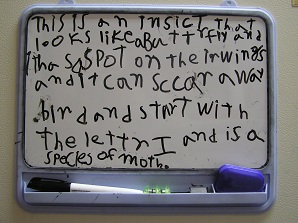 This is an insict that
looks like a Buttrfly and
itha s a SPOT on the irwings
and it can sccar a way
bird and start with
the letter I and is a
species of moth.